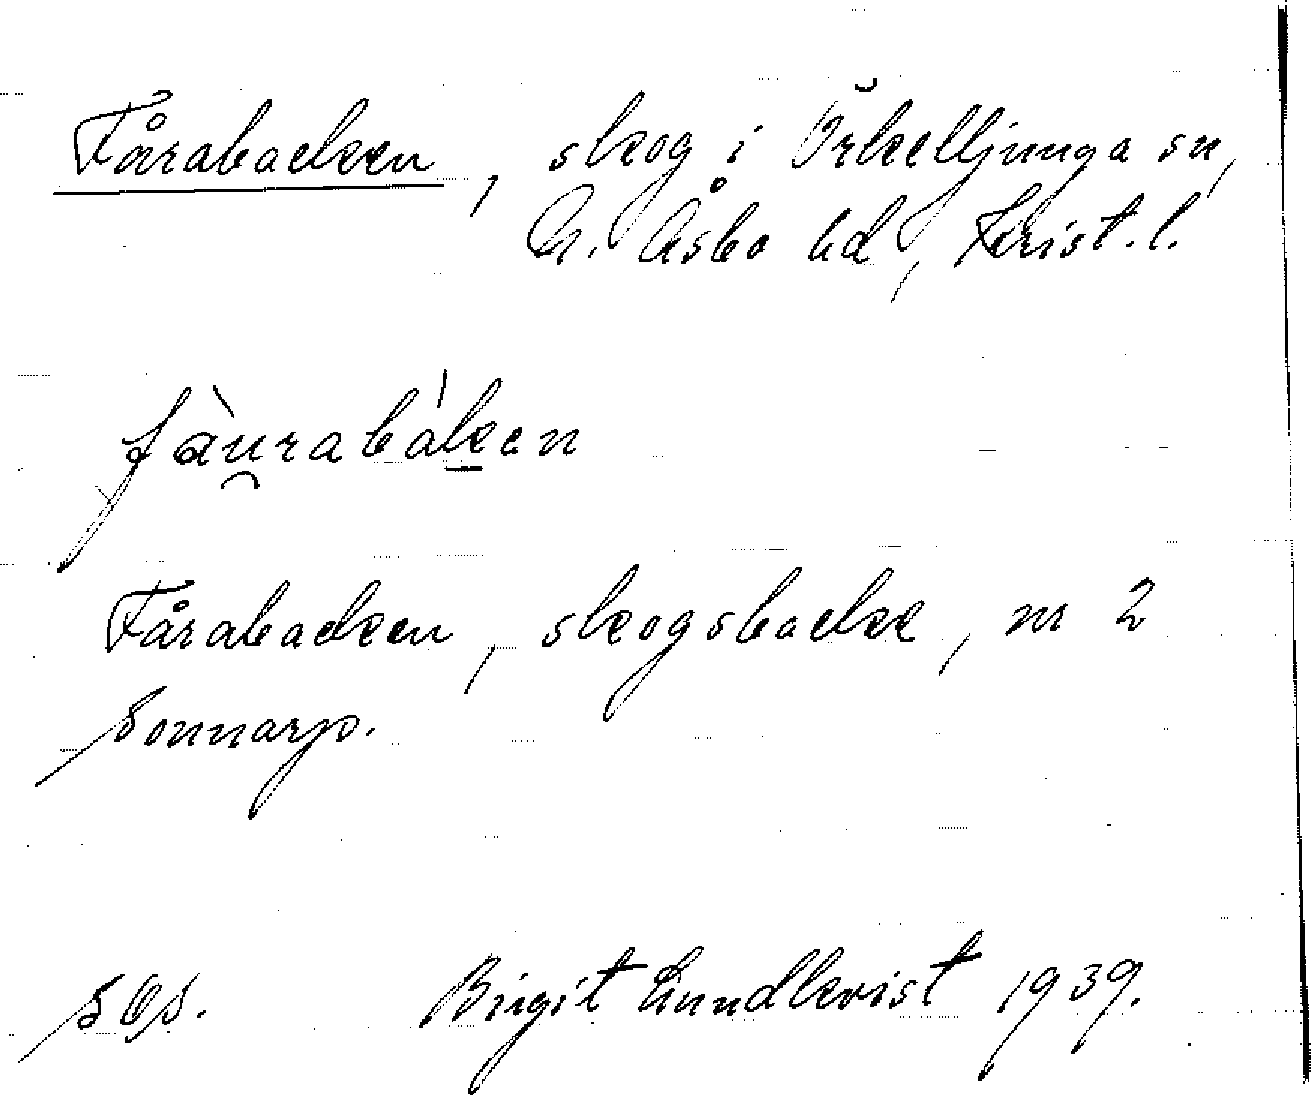 Fårabacken, skog i Örkelljunga sn,
N. Åsbo hd, Krist. l.
fàu̯rabák̲en
Fårabacken, skogsbacke, nr 2
Sonnarp.
Birgit Lundkvist 1939.